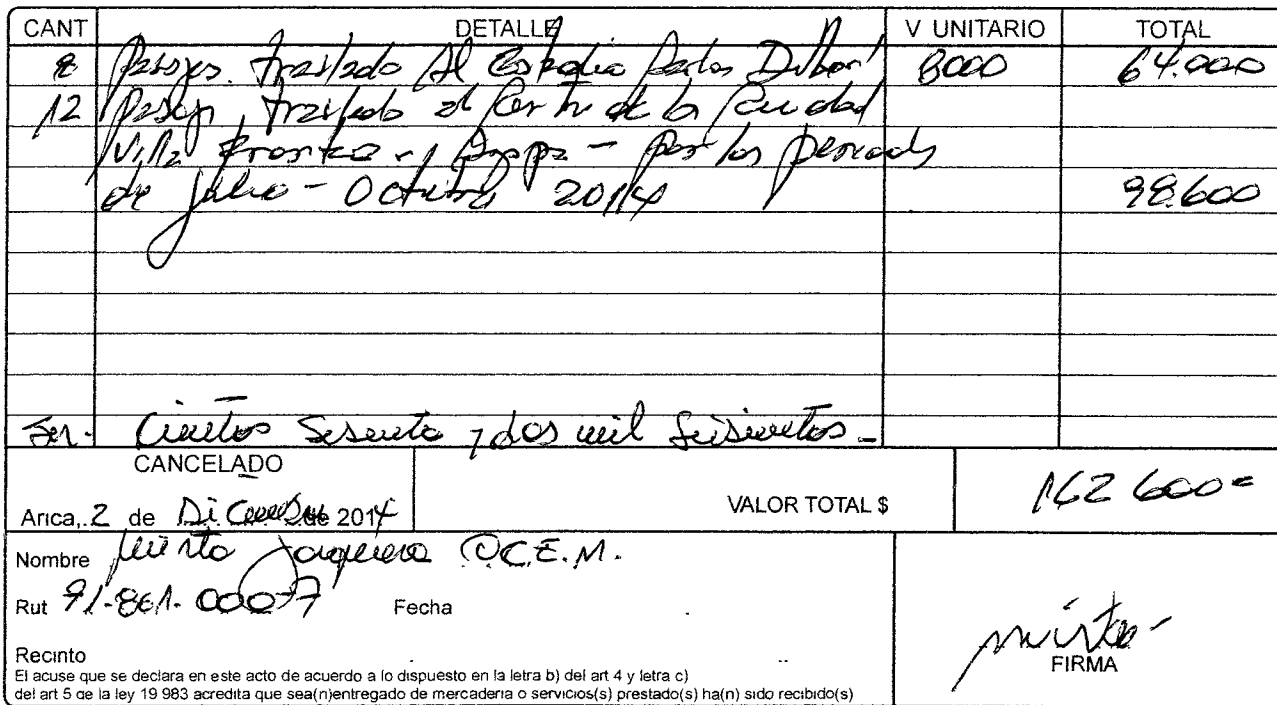 CANT DETALLE V UNITARIO TOTAL
8 pasajes traslado Al Estadio Carlos Dittborn 8000 64.000
12 pasajes traslado al Centro de la Ciudad
Villa Frontera - Arica - por los periodos
de Julio - Octubre 2014 98.600
Son.- Cientos Sesenta y dos mil Seiscientos -
CANCELADO
Arica, 2 de Diciembre de 2014 VALOR TOTAL $ 162 600=
Nombre Mirta Jorquera O.C.E.M.
Rut 91-861-000-7 Fecha
Recinto
El acuse que se declara en este acto de acuerdo a lo dispuesto en la letra b) del art 4 y letra c)
del art 5 de la ley 19 983 acredita que sea(n)entregado de mercaderia o servicios(s) prestado(s) ha(n) sido recibido(s)
mirta
FIRMA